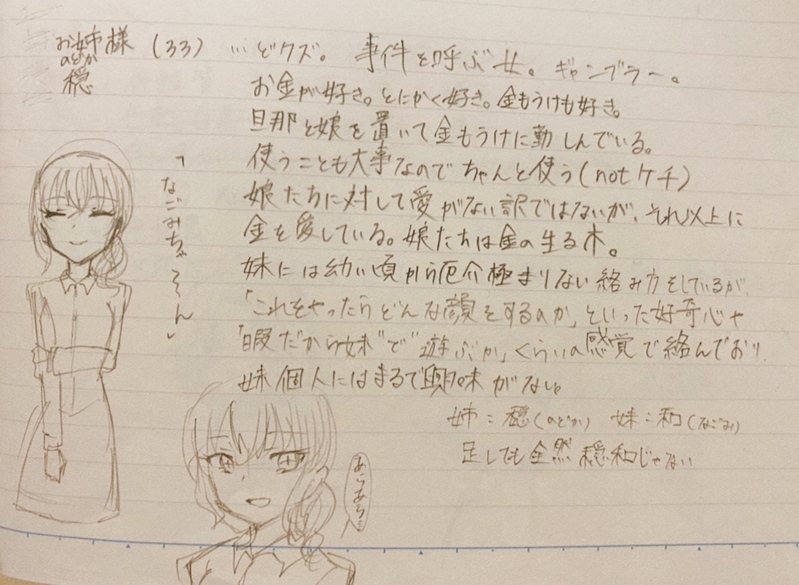 お姉様(33) …どクズ。事件を呼ぶ女。ギャンブラー。
のどか
穏
お金が好き。とにかく好き。金もうけも好き。
旦那と娘を置いて金もうけに勤しんでいる。
使うことも大事なのでちゃんと使う(notケチ)
娘たちに対して愛がない訳ではないが、それ以上に
金を愛している。娘たちは金の生る木。
妹には幼い頃から厄介極まりない絡み方をしているが、
「これをやったらどんな顔をするのか」といった好奇心や
「暇だから妹"で"遊ぶか」くらいの感覚で絡んでおり、
妹個人にはまるで興味がない。
姉:穏(のどか) 妹:和(なごみ)
足しても全然穏和じゃない
「なごみちゃそん」
あらあら